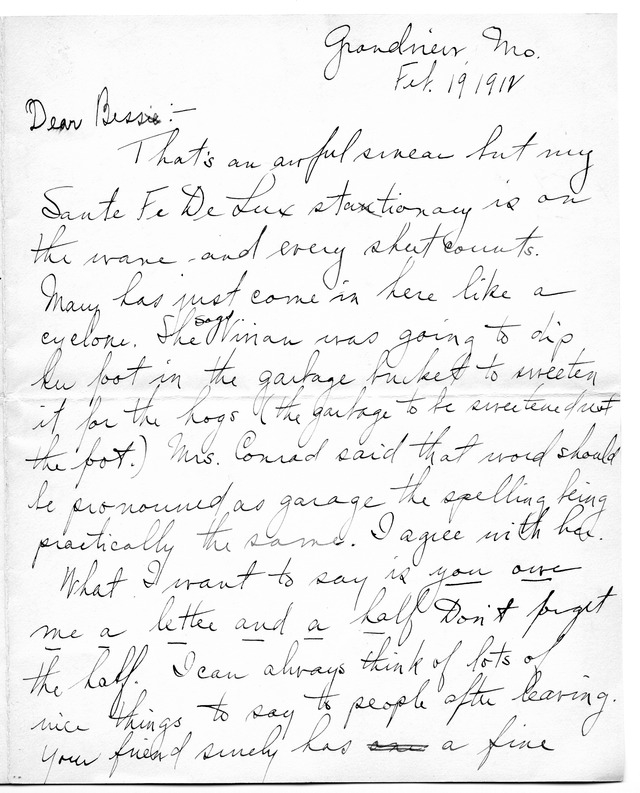 Grandview, Mo.
Feb. 19, 1912
Dear Bessie:-
That's an awful smear but my
Sante Fe De Lux stationary is on
the wane and every sheet counts.
Mary has just come in here like a
cyclone. She says Vivian was going to dip
his foot in the garbage bucket to sweeten
it for the hogs (the garbage to be sweetened not
the foot.) Mrs. Conrad said that word should
be pronounced as garage the spelling being
practically the same. I agree with her.
What I want to say is you owe
me a letter and a half Don't forget
the half. I can always think of lots of
nice things to say to people after leaving.
Your friend surely has a fine